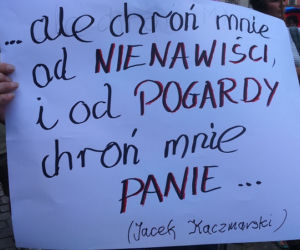 ...ale chroń mnie
od NIENAWIŚCI,
i od POGARDY
chroń mnie
PANIE ...
(Jacek Kaczmarski)